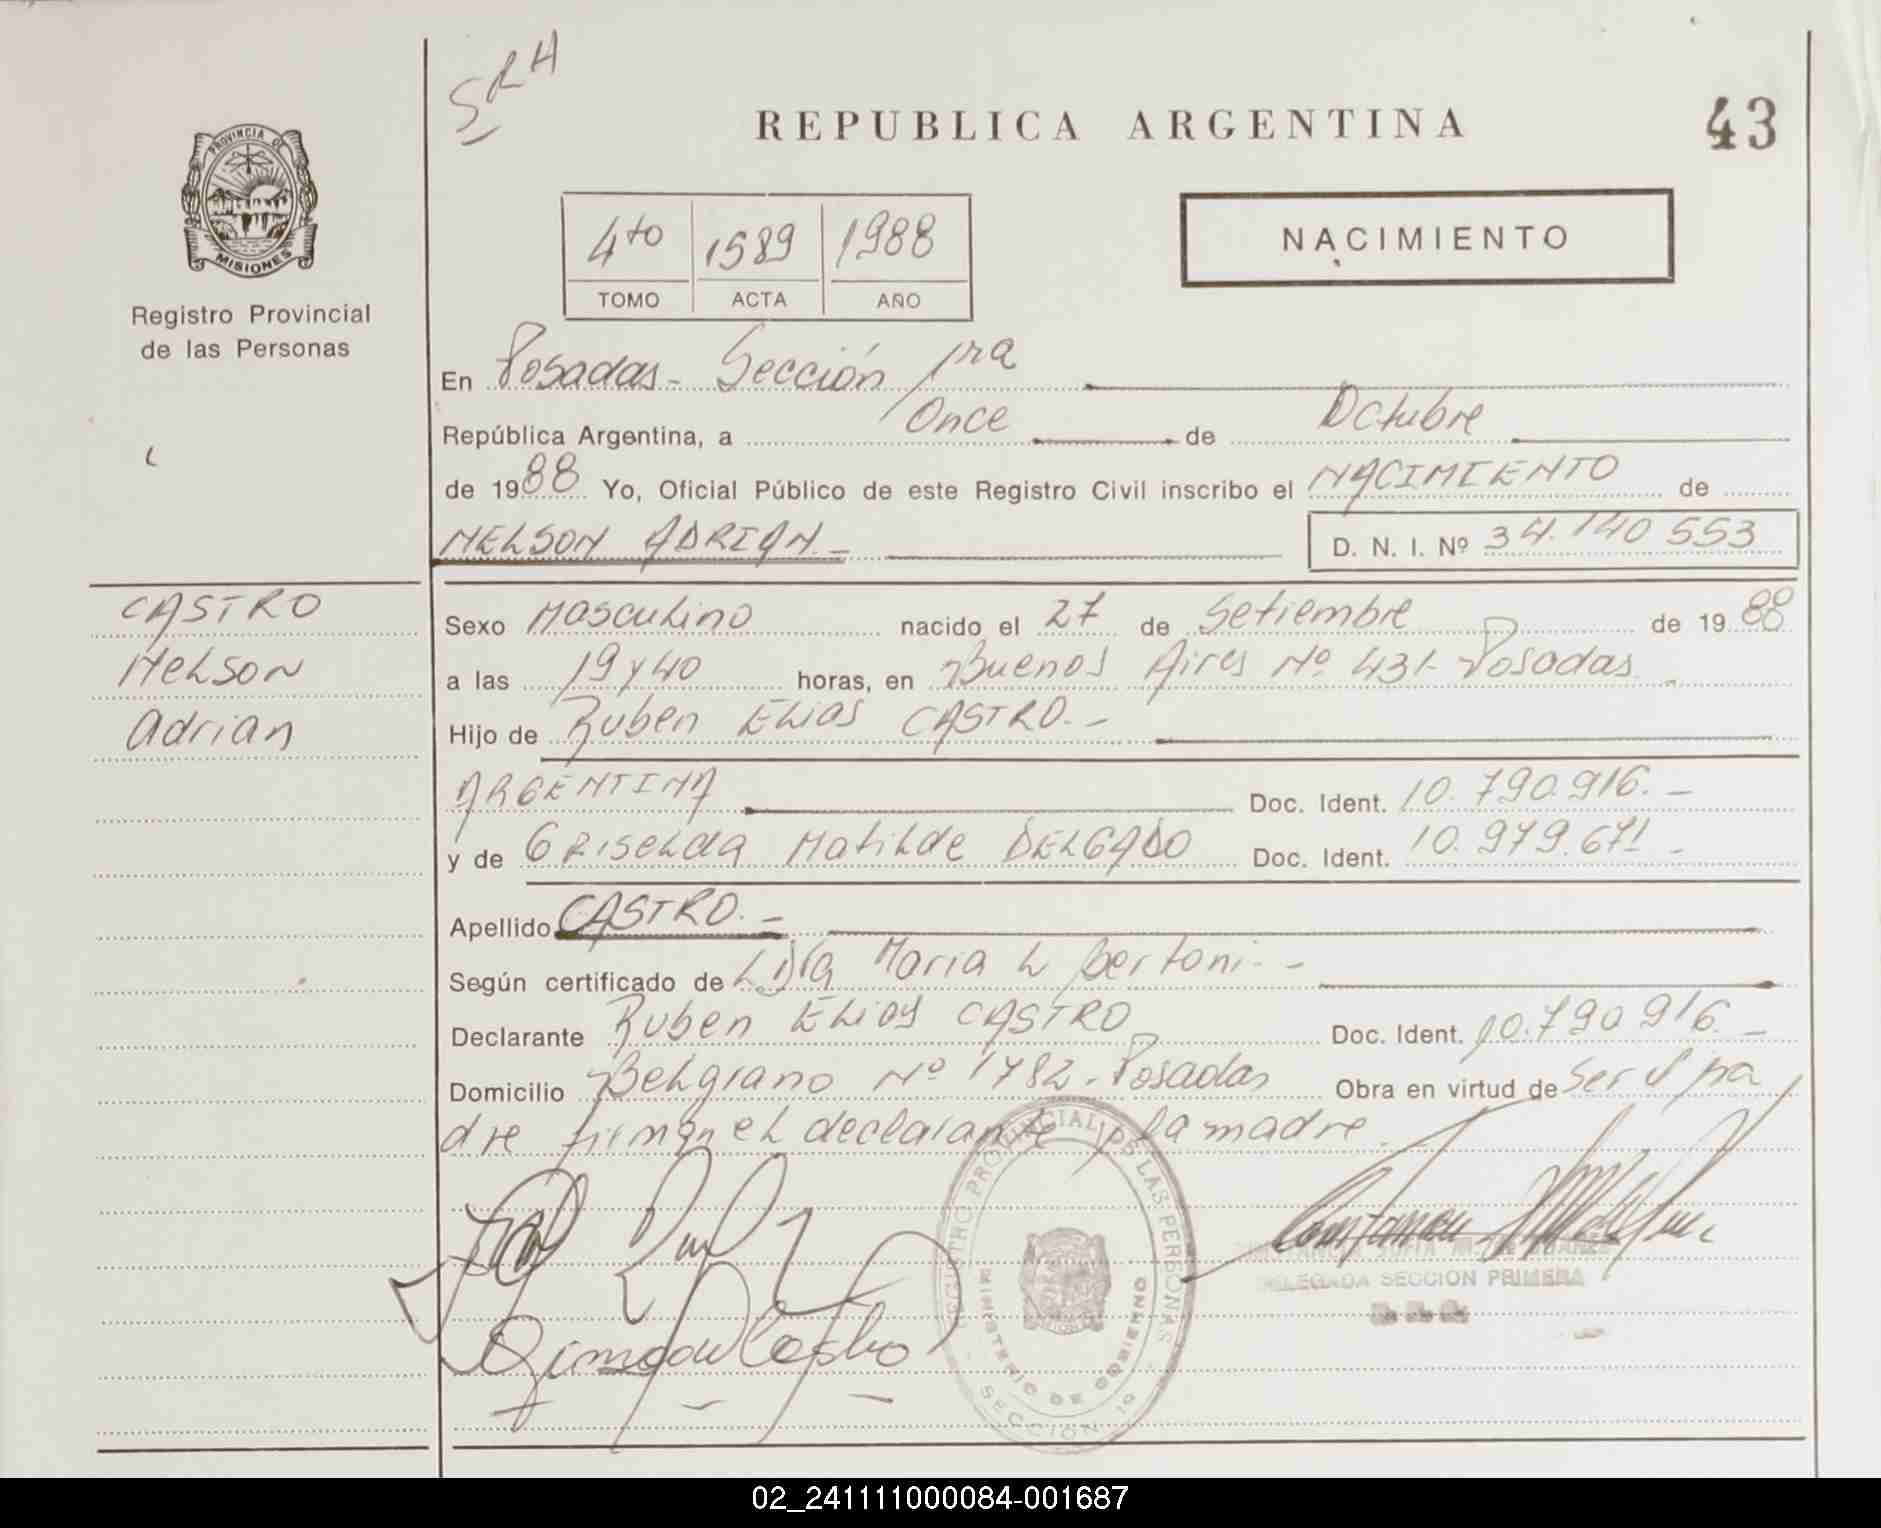 SRH
REPUBLICA ARGENTINA
43
PROVINCIA DE
MISIONES
Registro Provincial
de las Personas
4to 1589 1988
TOMO ACTA AÑO
NACIMIENTO
En Posadas - Sección 1ra
República Argentina, a Once de Octubre
de 1988 Yo, Oficial Público de este Registro Civil inscribo el NACIMIENTO de
NELSON ADRIAN.-
D. N. I. Nº 34.140 553
CASTRO
Nelson
Adrian
Sexo Masculino nacido el 27 de Setiembre de 1988
a las 19 y 40 horas, en Buenos Aires Nº 431- Posadas.
Hijo de Ruben Elias CASTRO.-
ARGENTINA Doc. Ident. 10.790.916.-
y de Griselda Matilde DELGADO Doc. Ident. 10.979.671 -
Apellido CASTRO.-
Según certificado de Maria L Bertoni.-
Declarante Ruben Elias CASTRO Doc. Ident. 10.790 916.-
Domicilio Belgrano Nº 1782. Posadas Obra en virtud de ser el pa
dre firman el declarante y la madre.
REGISTRO PROVINCIAL DE LAS PERSONAS
MINISTERIO DE GOBIERNO
SECCION 1ª
DELEGADA SECCION PRIMERA
02_241111000084-001687